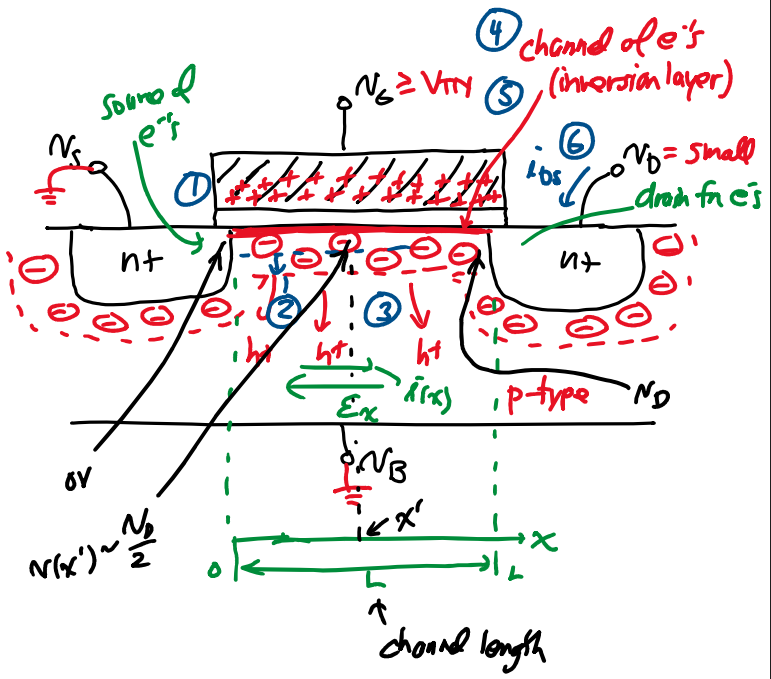 ④ channel of e⁻'s
⑤ (inversion layer)
source of
e⁻'s
V_G ≥ V_TN
V_S
①
+ + + + + + + +
⑥
i_DS
V_D = small
drain for e⁻'s
n+
n+
②
③
h+
h+
h+
i(x)
Ɛ_x
p-type
V_D
0V
V_B
V(x') ~ V_D/2
x'
x
0
L
L
channel length